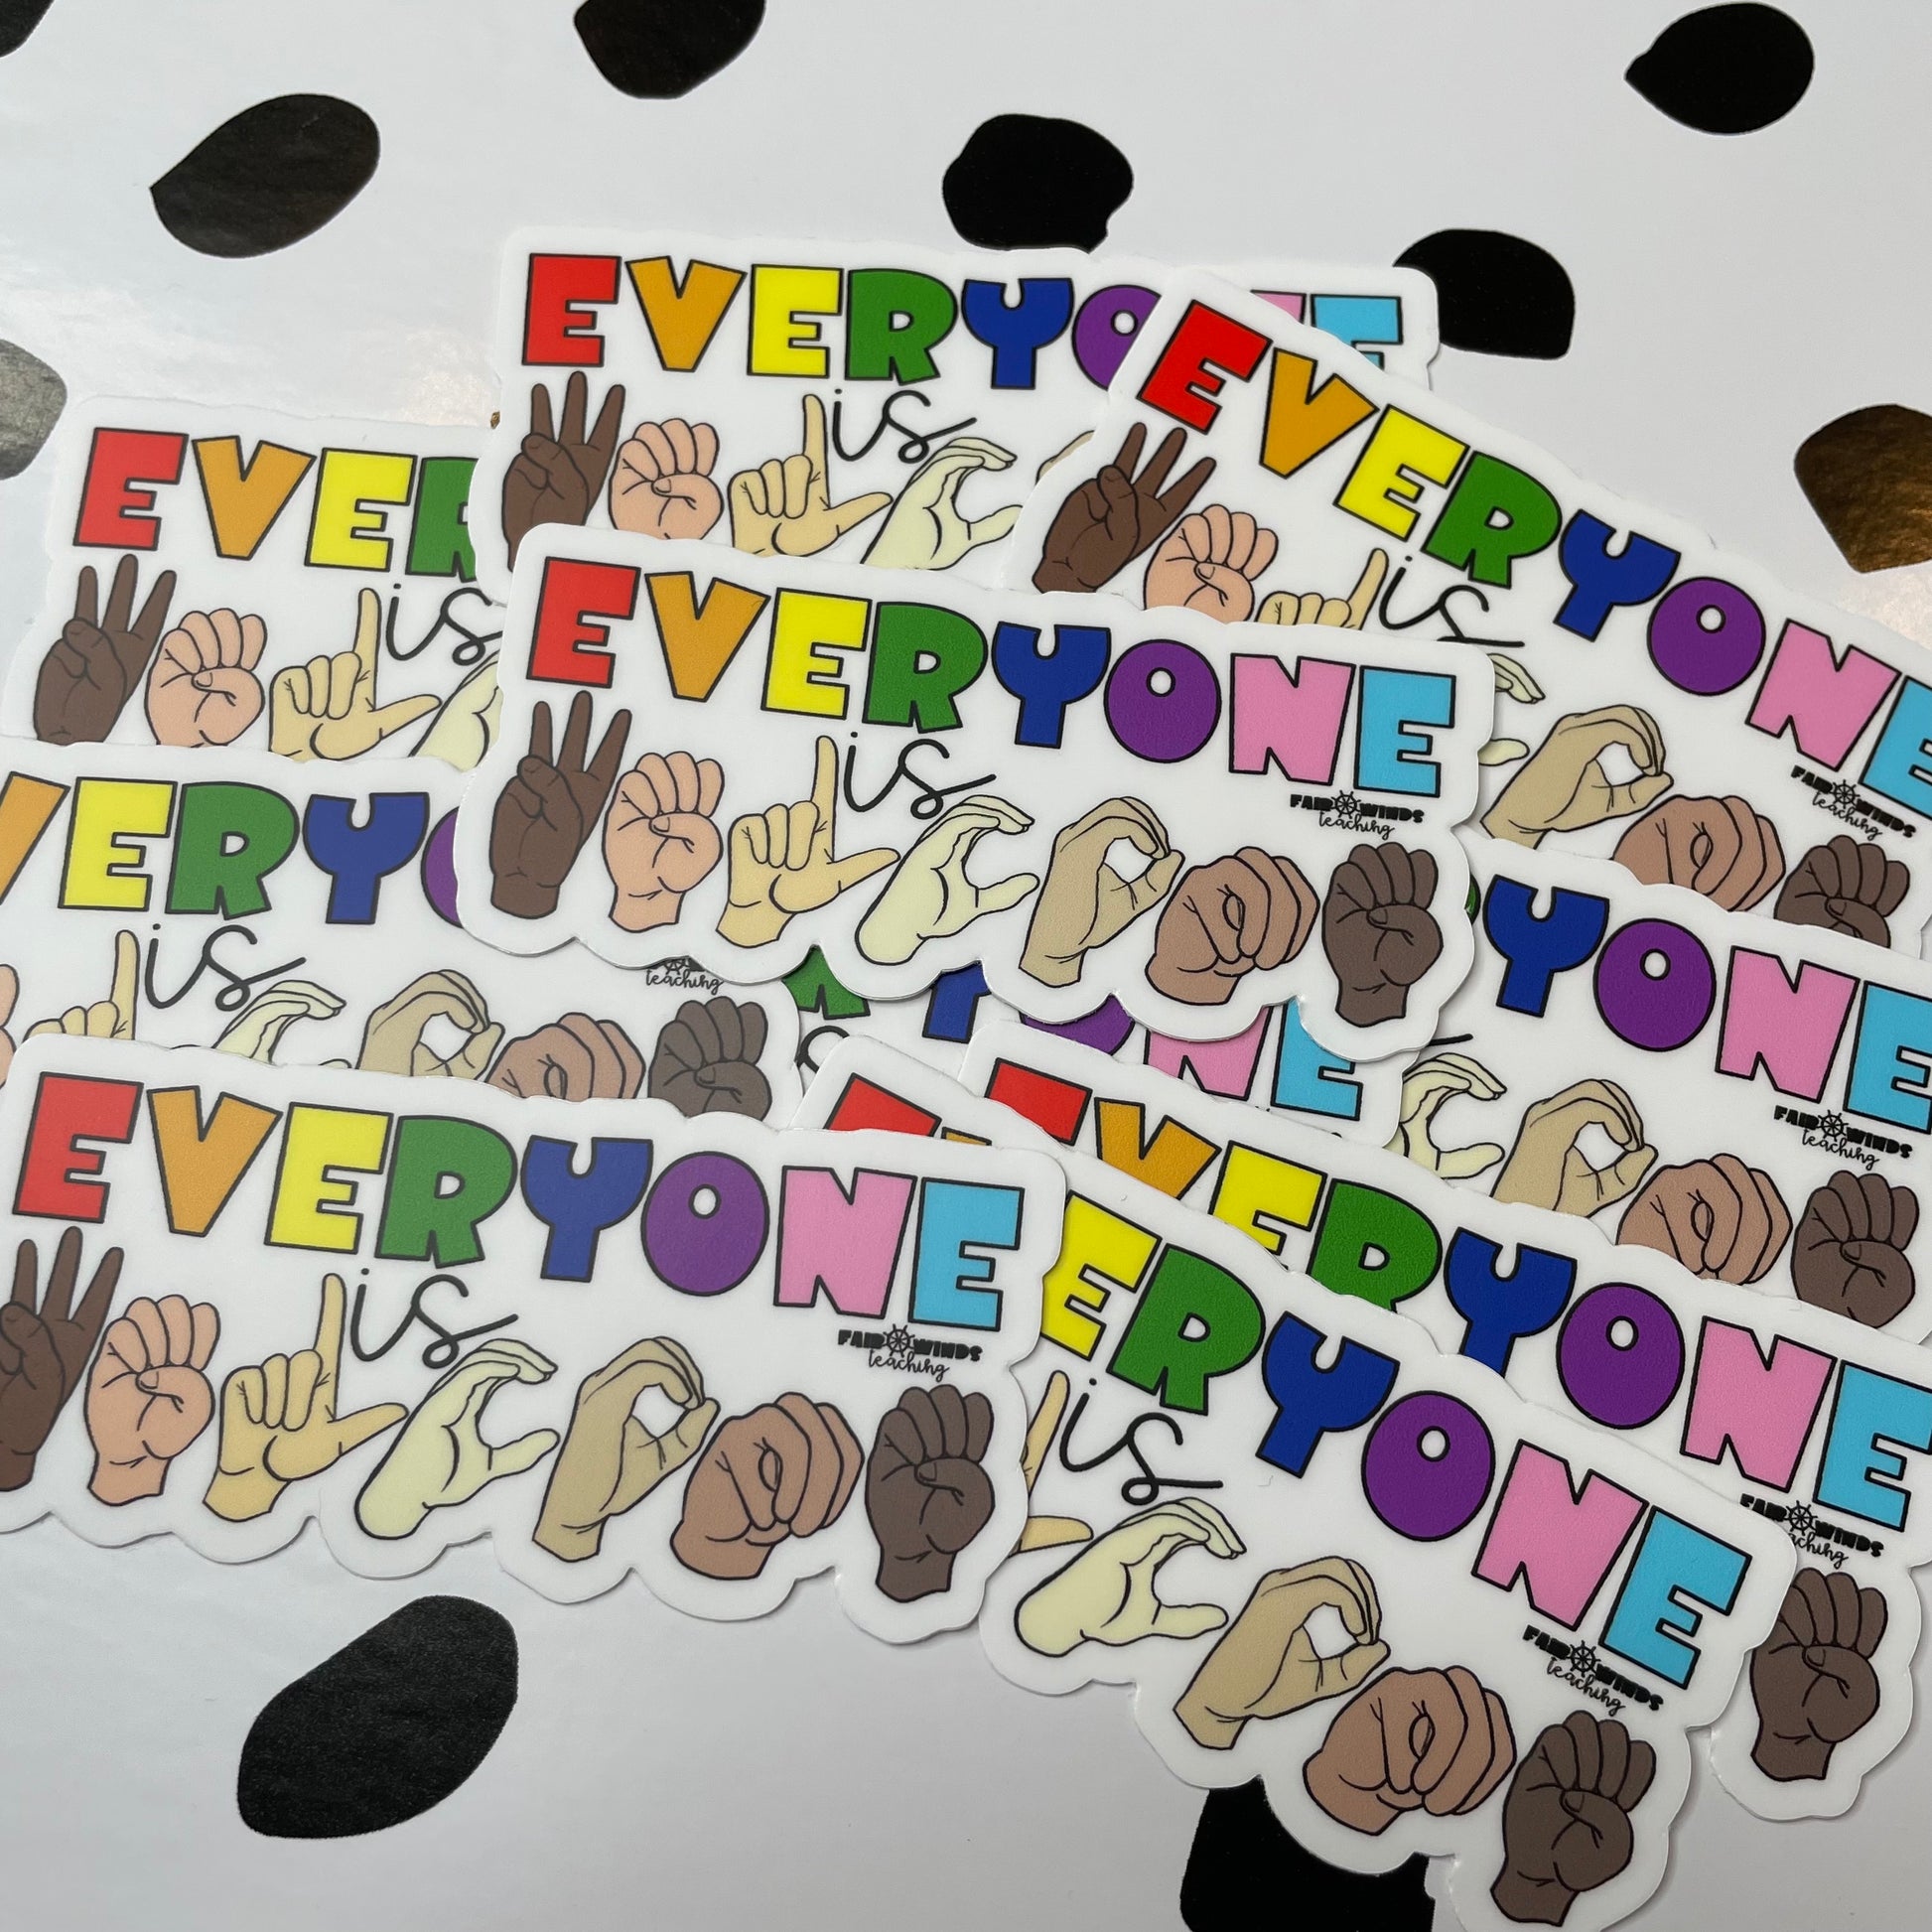 EVERYONE
is
EVERYONE
is
FAIR WINDS
teaching
EVER
is
EVERYONE
is
FAIR WINDS
teaching
VERYO
is
teaching
YONE
FAIR WINDS
teaching
RYONE
EVERYONE
is
FAIR WINDS
teaching
EVERYONE
FAIR WINDS
aching
ERYONE
is
FAIR WINDS
teaching